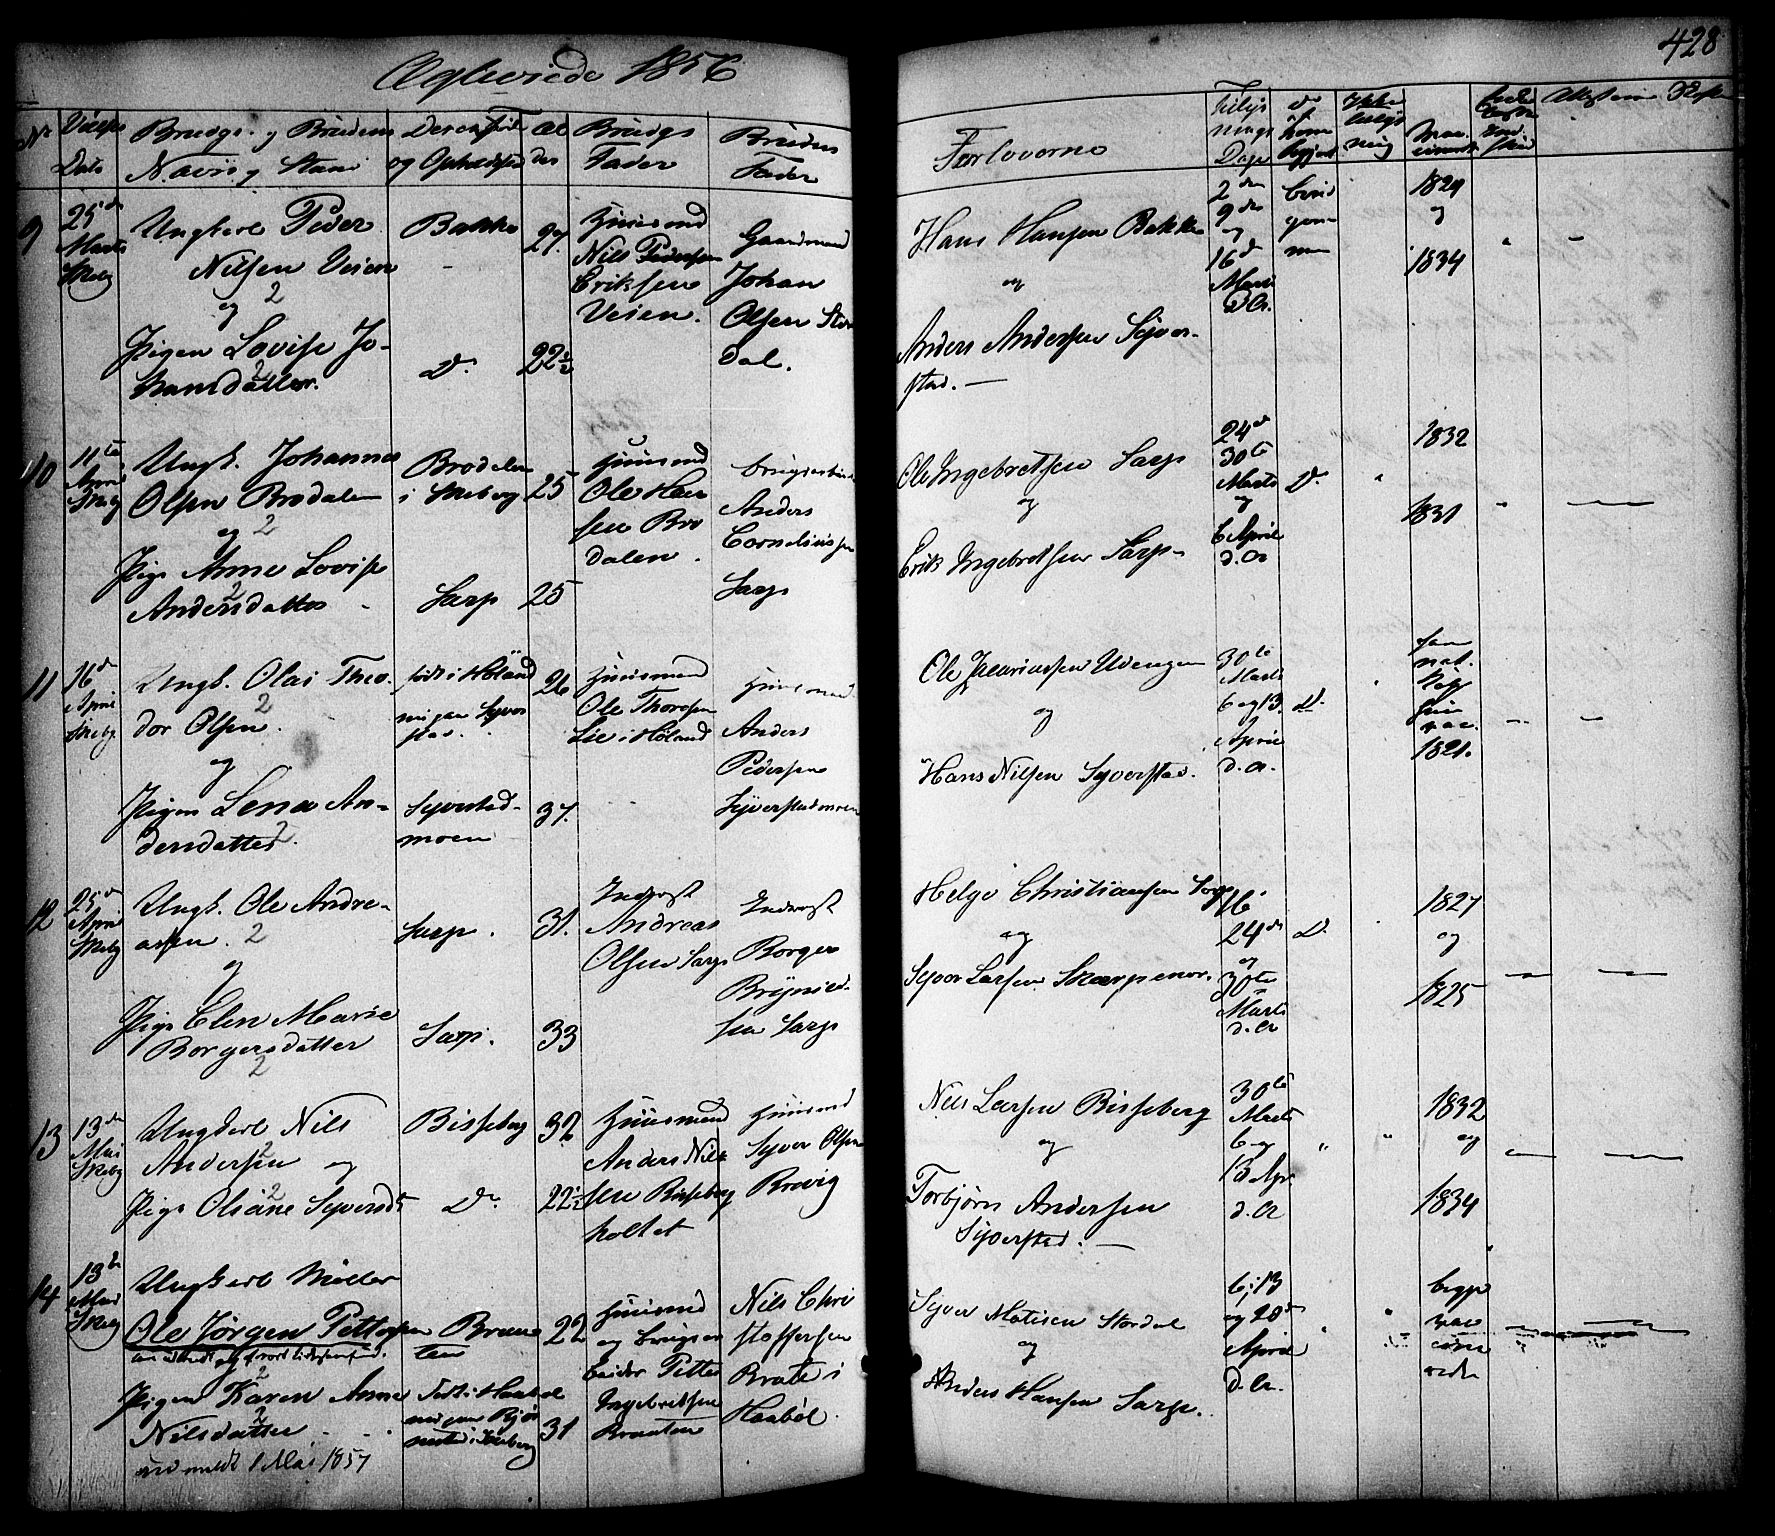 Ægteviede 1856
428
No
Vielses Dato
Brudgs. og Brudens Navn og Stand
Deres Føde og Opholdssted
Alder
Brudgs Fader
Brudens Fader
Forloverne
Tillysnings Dage
9
25de Marts Skebg
Ungkarl Peder
Nilsen Veien
2
og
Pigen Lovise Jo-
hansdatter.
2
Bakke
Do
27.
22½
Huusmand
Nils Pedersen
Eriksen
Veien.
Gaardmand
Johan
Olsen Stor
dal.
Hans Hansen Bakke
og
Anders Andersen Syver-
stad. —
2den
9de
og
16de
Marts
d. A.
1829
og
1834
10
11te April Skebg
Ungk. Johannes
Olsen Brodalen
og 2
Pige Anne Lovise
2
Andersdatter
Brodalen
i Skeberg
Sarp
25
25
Huusmd
Ole Han
sen Bro
dalen.
Anders
Corneliussen
Sarp
Ole Ingebretsen Sarp
og
Erik Ingebretsen Sarp
24de
30te
Marts
og
6 April
d. A
Do
1832
1831
11
16de April Skebg
Ungk. Olai Theo-
dor Olsen.
2
og
Pigen Lena An-
dersdatter.
2
født i Høland
Syverstad-
moen
26
37.
Huusmand
Ole Thoresen
Lie i Høland
Huusmand
Anders
Pedersen
Syverstadmoen
Ole Zacariassen Udengen
og
Hans Nilsen Syverstad.
30te
Marts
6 og 13.
April
d. A.
Do
1821.
12
25de April Skebg
Ungk. Ole Andre-
assen. 2
og
Pige Elen Marie
Borgersdatter
2
Sarp.
Sarp.
31.
33
Inderst
Andreas
Olsen Sarp
Inderst
Borger
Brynild-
sen Sarp
Helge Christiansen Sarp
og
Syver Larsen Skarpenor.
16.
24de
og
30te
Marts
d. A
Do
1827
og
1825
13
13de Mai Skebg
Ungkarl Nils
Andersen og
2
Pige Olsine Syversdt
2
Bisseberg
Do
32
22½
Huusmand
Anders Nils
sen Bisseberg
holtet
Huusmd
Syver Olsen
Brevig
Nils Larsen Bisseberg
og
Torbjørn Andersen
Syverstad. —
30te
Marts
6 og
13 Apr
d. A
1832
og
1834
14
13de Mai Skebg
Ungkarl Møller
Ole Jørgen Pettersen
2
Pigen Karen Anne
2
Nilsdatter
ud meldt 1 Mai 1857
Braa
ten
Født i Haabøl
22
31
Huusmd
Petter
Ingebretsen
Braaten
Nils Chri
stoffersen
Brate i
Haabøl.
Syver Matisen Stordal
og
Anders Hansen Sarp.
6; 13
og 20de
April
d. A.
begge
vac
cine
rede